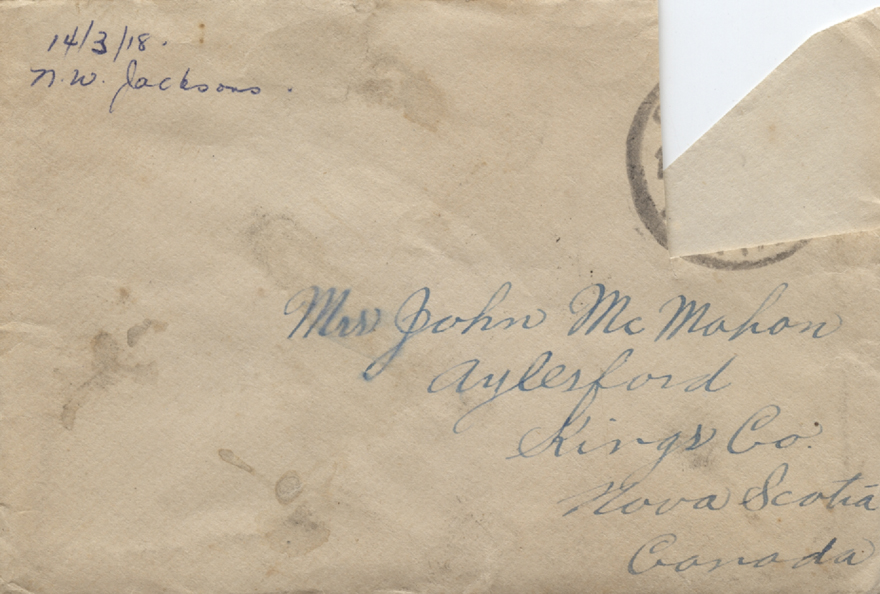 14/3/18.
N. W. Jacksons.
Mrs John McMahon
Aylesford
Kings Co.
Nova Scotia
Canada